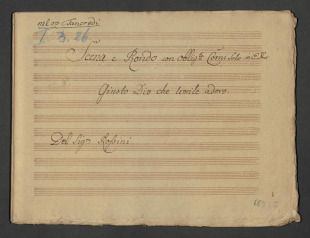 nel ... Tancredi
I. 3. 26.
Scena e Rondo con obblig:to Corno Solo
Giusto Dio che umile adoro.
Del Sig.r Rossini